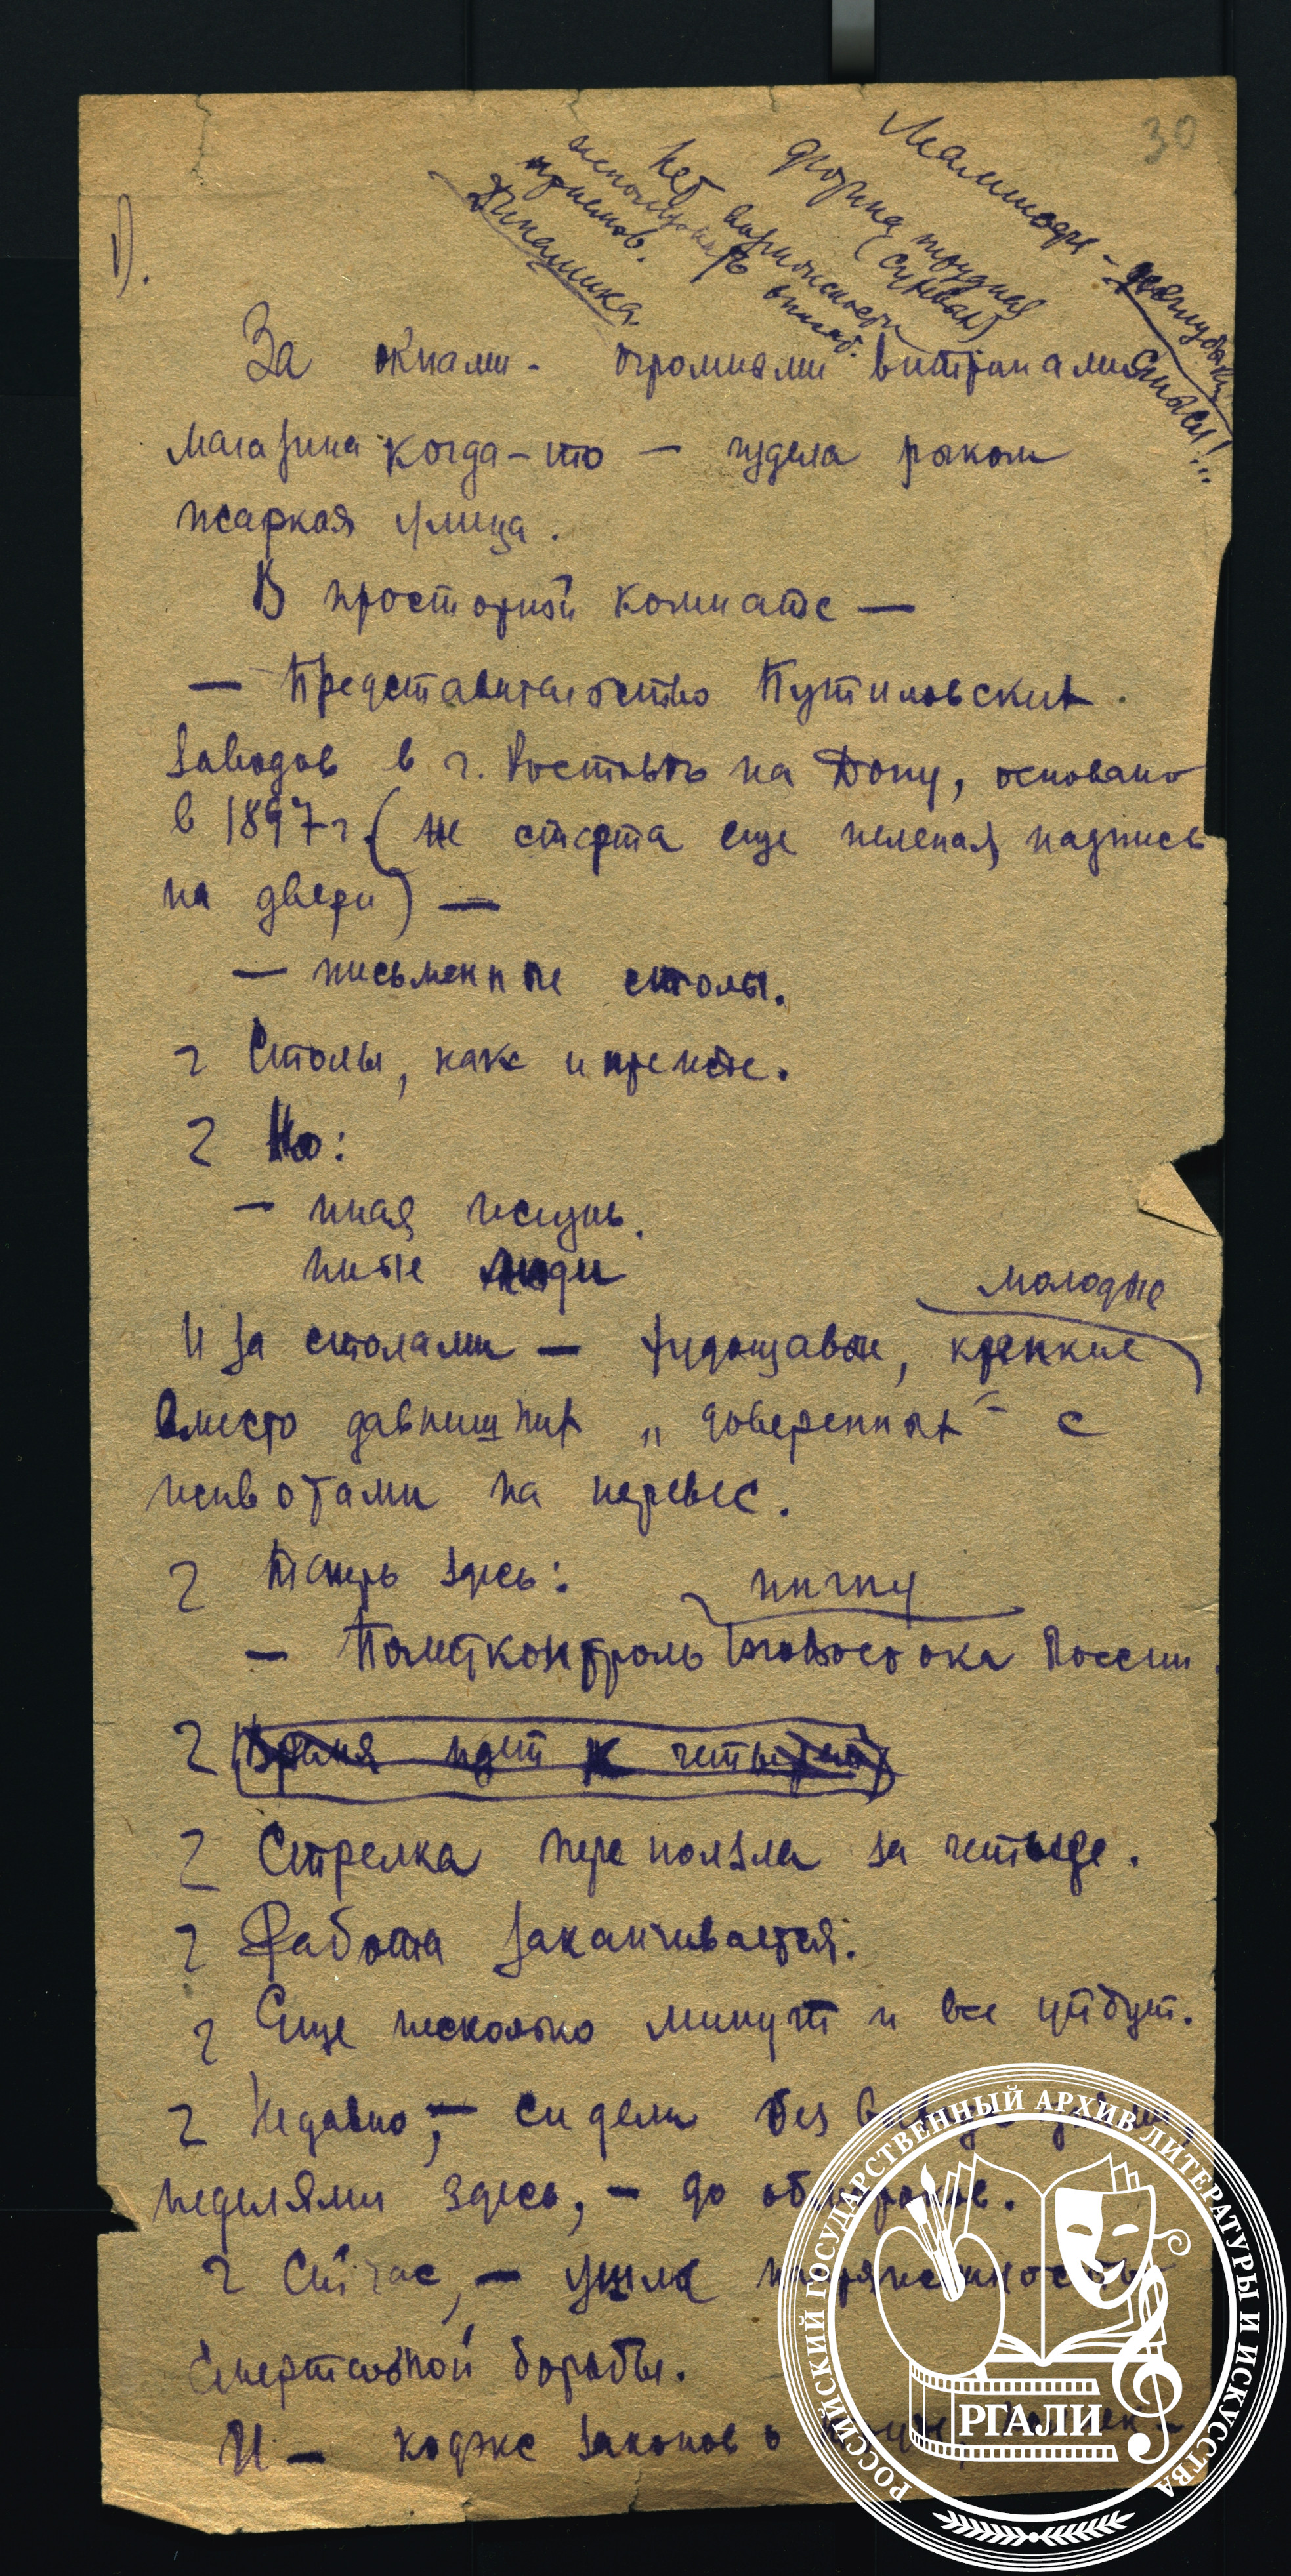 30
1).
нет возможности
использовать
приемов.
Динамика.
За окнами - огромными витринами
магазина когда-то — гудела рыком
жаркая улица.
В просторной комнате —
— Представительство Путиловских
заводов в г. Ростовѣ на Дону, основано
в 1897 г. (не стерта еще нелепая надпись
на двери) —
— письменные столы.
Столы, как и прежде.
Но:
— иная жизнь.
иные люди
молодые
И за столами — худощавые, крепкие
вместо давнишних „доверенных" с
животами на перевес.
Теперь здесь:
— Политконтроль Юговостока России.
Время идет к четырем
Стрелка переползла за четыре.
Работа заканчивается.
Еще несколько минут и все уйдут.
Недавно, — сидели без
неделями здесь, — до обмороков.
Сейчас, — ушла напряженность
смертельной борьбы.
И — кодекс законов о
РОССИЙСКИЙ ГОСУДАРСТВЕННЫЙ АРХИВ ЛИТЕРАТУРЫ И ИСКУССТВА
РГАЛИ